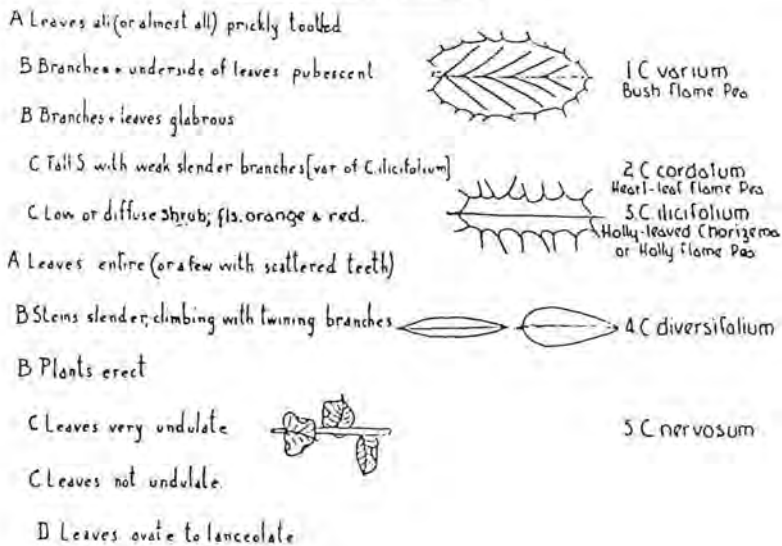 A Leaves all (or almost all) prickly toothed
B Branches + underside of leaves pubescent
1 C varium
Bush Flame Pea
B Branches + leaves glabrous
C Tall S with weak slender branches [var of C. ilicifolium]
2 C cordatum
Heart-leaf Flame Pea
C Low or diffuse shrub; fls. orange & red.
3 C ilicifolium
Holly-leaved Chorizema
or Holly Flame Pea
A Leaves entire (or a few with scattered teeth)
B Stems slender, climbing with twining branches
4 C diversifolium
B Plants erect
C Leaves very undulate
5 C nervosum
C Leaves not undulate.
D Leaves ovate to lanceolate